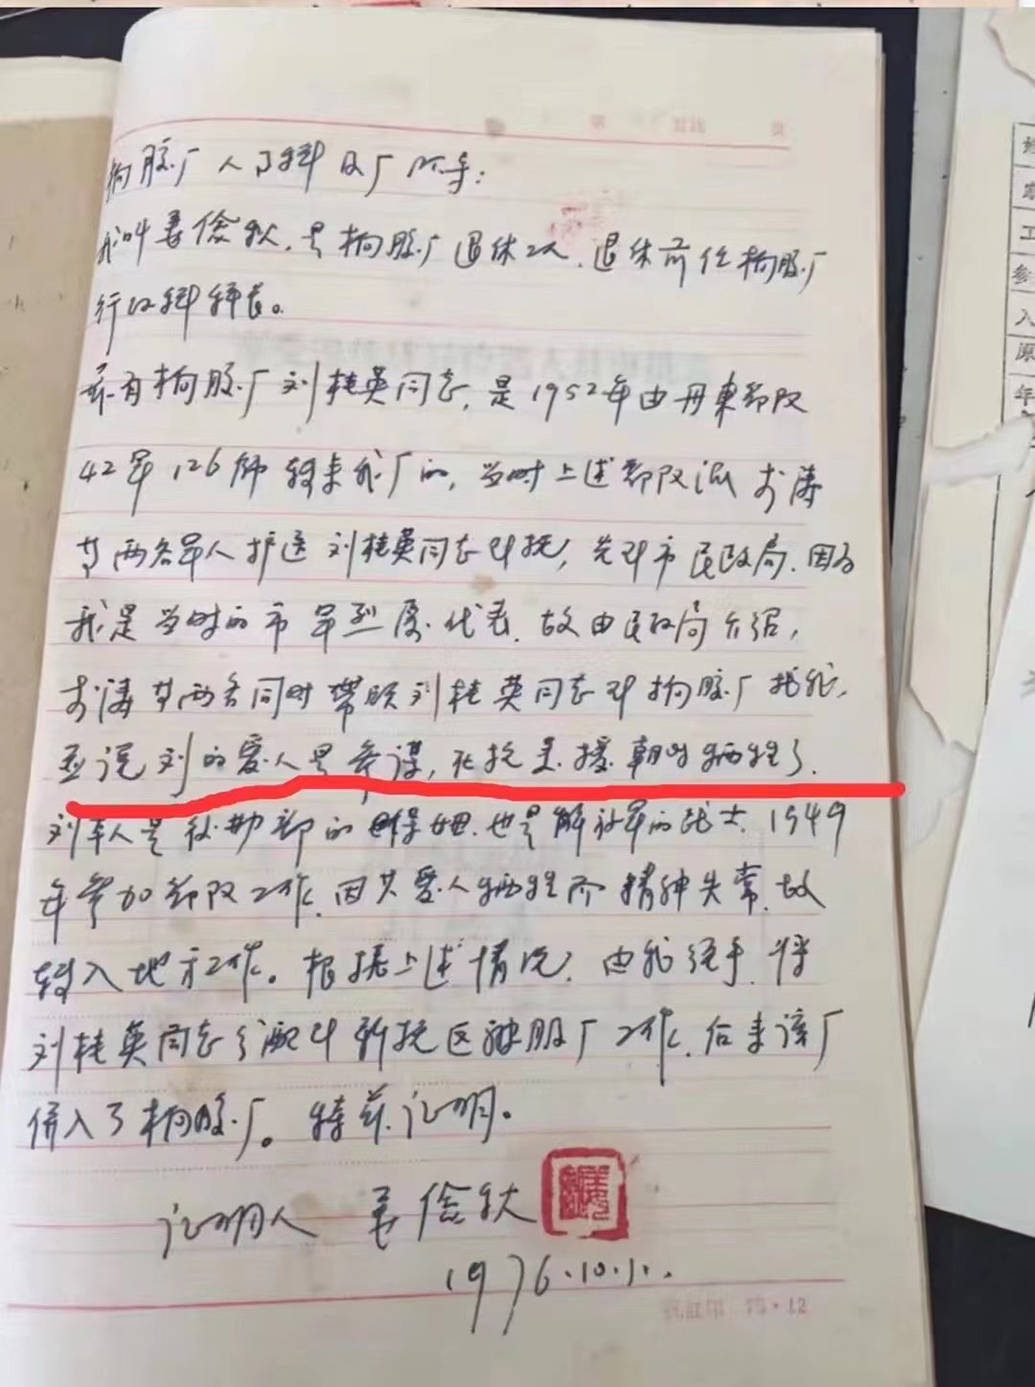 橡胶厂人事科及厂所等:
我叫姜俭钦,是橡胶厂退休工人,退休前任橡胶厂
行政科科长。
兹有橡胶厂刘桂英同志,是1952年由丹東部队
42军126师转来我厂的,当时上述部队派于涛
等两名军人护送刘桂英同志到抚,先到市民政局.因为
我是当时的市军烈属代表.故由民政局介绍,
于涛等两名同时带领刘桂英同志到橡胶厂找我,
并说刘的爱人是参谋,在抗美援朝时牺牲了.
刘本人是后勤部的保姆.也是解放军的战士.1949
年参加部队工作.因其爱人牺牲而精神失常.故
转入地方工作。根据上述情况,由我经手.将
刘桂英同志分配到新抚区被服厂工作.后来该厂
併入了橡胶厂。特兹证明。
证明人 姜俭钦
1976.10.1.
姓
工
参
入
原
年